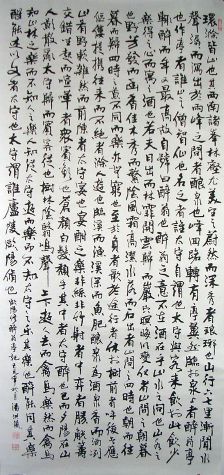 環滁皆山也其西南諸峰林壑尤美望之蔚然而深秀者琅琊也山行六七里漸聞水
聲潺潺而瀉出於兩峰之間者釀泉也峰回路轉有亭翼然臨於泉上者醉翁亭
也作亭者誰山之僧智仙也名之者誰太守自謂也太守與客來飲於此飲少
輒醉而年又最高故自號曰醉翁也醉翁之意不在酒在乎山水之間也山水之
樂得之心而寓之酒也若夫日出而林霏開雲歸而巖穴暝晦明變化者山間之朝暮
也野芳發而幽香佳木秀而繁陰風霜高潔水落而石出者山間之四時也朝而往
暮而歸四時之景不同而樂亦無窮也至於負者歌於途行者休於樹前者呼後者應
傴僂提攜往來而不絕者滁人遊也臨溪而漁溪深而魚肥釀泉為酒泉香而酒洌
山肴野蔌雜然而前陳者太守宴也宴酣之樂非絲非竹射者中弈者勝觥籌
交錯起坐而喧嘩者眾賓歡也蒼顏白髮頹乎其中者太守醉也已而夕陽在山
人影散亂太守歸而賓客從也樹林陰翳鳴聲上下遊人去而禽鳥樂也然而禽鳥
知山林之樂而不知人之樂人知從太守遊而樂而不知太守之樂其樂也醉能同其樂
醒能述以文者太守也太守謂誰廬陵歐陽修也